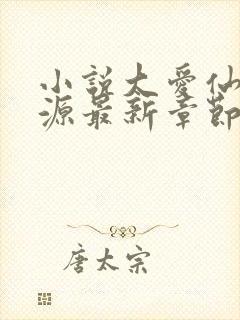 小說大愛仙
源最新章節
唐太宗